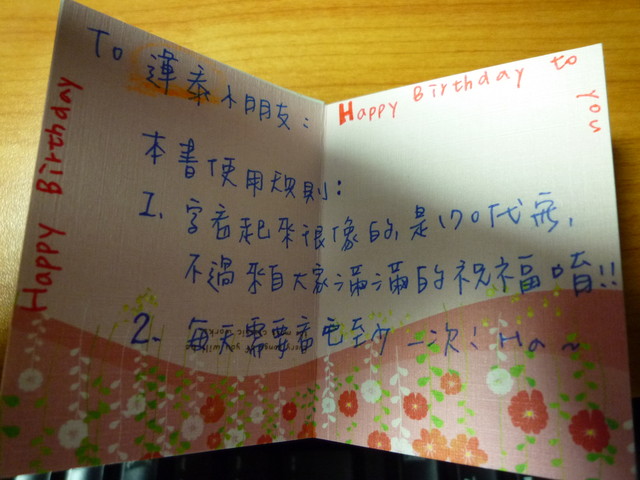 To 蓮泰小朋友:
Happy Birthday
Happy Birthday to you
本書使用規則:
1. 字看起來很像的,是
不過來自大家滿滿的祝福唷!!
2. 每天需要看它至少一次! Ha~